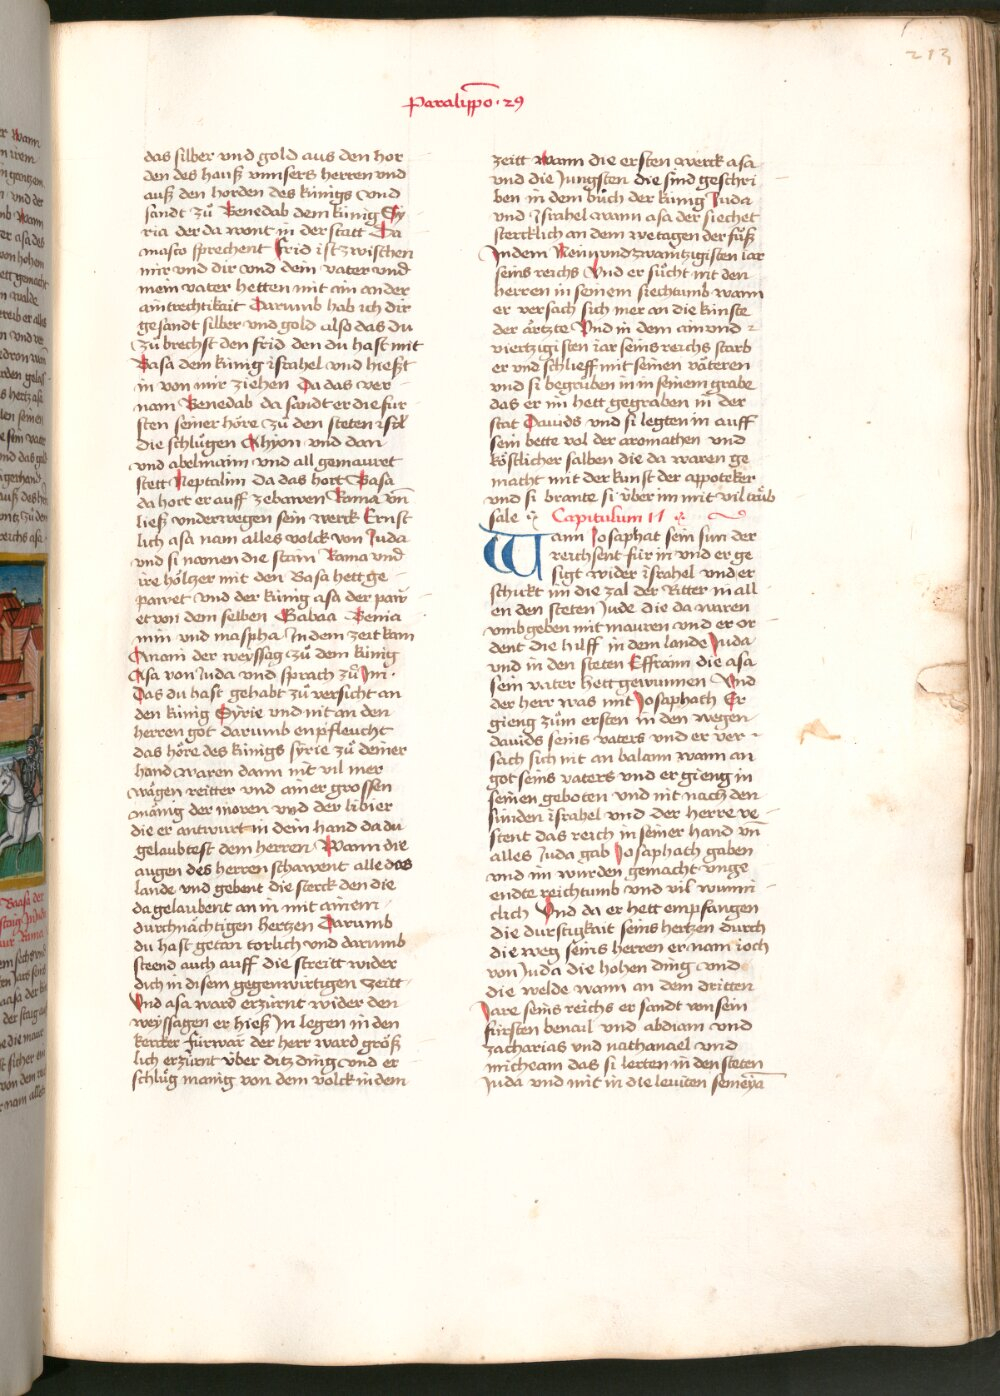 213
Paralippo · 29
das silber vnd gold aus den hor
den des hauß vnnsers herren vnd
auß den horden des künigs vnd
sandt zů Benedab dem künig Sy
ria der da wont in der statt Da
masco sprechent Frid ist zwischen
mir vnd dir vnd dein vater vnd
mein vater hetten mit ain ander
aintrechtikait Darumb hab ich dir
gesandt silber vnd gold also das du
zů brechst den frid den du hast mit
Basa dem künig israhel vnd hießt
in von mir ziehen Da das ver
nam Benedab da sandt er die für
sten seiner höre zů den steten isrl
die schlůgen Ahyon vnd dan
vnd abelmaim vnd all gemauret
stett Neptalim da das hort Basa
da hort er auff ze bawen Rama vn̄
ließ vnderwegen sein werck Ernst
lich asa nam alles volck von Juda
vnd si namen die stain Rama vnd
ire höltzer mit den Basa hett ge
pawet vnd der künig asa der paw
et von dem selben Gabaa Benia
min vnd maspha In dem zeit kam
Anani der weyssag zů dem künig
Asa von Juda vnd sprach zů Im ·
Das du hast gehabt zů versicht an
den künig Syrie vnd nit an den
herren got darumb enpfleucht
das höre des künigs syrie zů deiner
hand waren dann nit vil mer
wägen reitter vnd ainer grossen
mänig der moren vnd der libier
die er antwurt in dein hand da du
gelaubtest dem herren Wann die
augen des herren schawent alle das
lande vnd gebent die sterck den die
da gelaubent an in mit ainem
durchnächtigen hertzen Darumb
du hast getan torlich vnd darumb
steend auch auff die streitt wider
dich in disem gegenwirtigen zeitt
Vnd asa ward erzürnt wider den
weyssagen er hieß In legen in den
kercker fürwar der herr ward größ
lich erzürnt über ditz ding vnd er
schlůg manig von dem volck in dem
zeitt wann die ersten werck asa
vnd die Jungsten die sind geschri
ben in dem bůch der künig Juda
vnd israhel wann asa der siechet
stercklich an dem wetagen der fůß
In dem Neinvndzwaintzigisten iar
seins reichs Vnd er sůcht nit den
herren in seinem siechtumb wann
er versach sich mer an die künste
der ärtzte Vnd in dem ainvnd
viertzigisten iar seins reichs starb
er vnd schlieff mit seinen väteren
vnd si begrůben in in seinem grabe
das er im hett gegraben in der
stat Dauids vnd si legten in auff
sein bette vol der aromathen vnd
köstlicher salben die da waren ge
macht mit der kunst der appoteker
vnd si brante si über im mit vil trüb
sale Capitulum 17
Wann Josaphat sein sun der
reichsent für in vnd er ge
sigt wider israhel vnd er
schickt im die zal der Ritter in all
en den steten Jude die da waren
vmbgeben mit mauren vnd er or
dent die hilff in dem lande Juda
vnd in den steten Effraim die asa
sein vater hett gewunnen Vnd
der herr was mit Josaphath Er
gieng zům ersten in den wegen
dauids seins vaters vnd er ver
sach sich nit an balaim wann an
got seins vaters vnd er gieng in
seinen geboten vnd nit nach den
sünden israhel vnd der herre ve
stent das reich in seiner hand vn̄
alles Juda gab Josaphath gaben
vnd im wurden gemacht vnge
endte reichtumb vnd vil wunni
clich Vnd da er hett empfangen
die durstigkait seins hertzen durch
die weg seins herren er nam ioch
von Juda die hohen ding vnd
die welde wann an dem dritten
Jare seins reichs er sandt von sein
fürsten benail vnd abdiam vnd
zacharias vnd nathanael vnd
micheam das si lerten in den steten
Juda vnd mit in die leuiten semeya